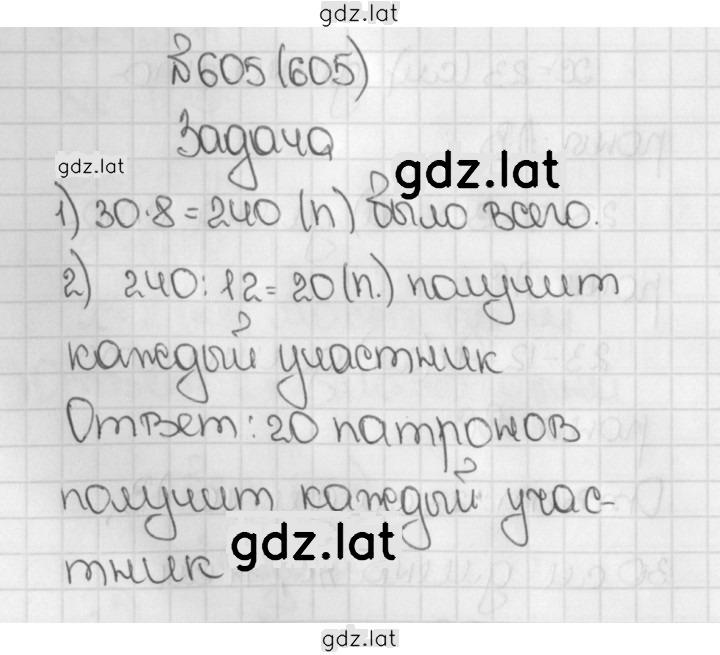 gdz.lat
№605 (605)
Задача
gdz.lat
gdz.lat
1) 30·8=240 (п) было всего.
2) 240:12=20(п.) получит
каждый участник
Ответ: 20 патронов
получит каждый учас-
тник
gdz.lat
gdz.lat